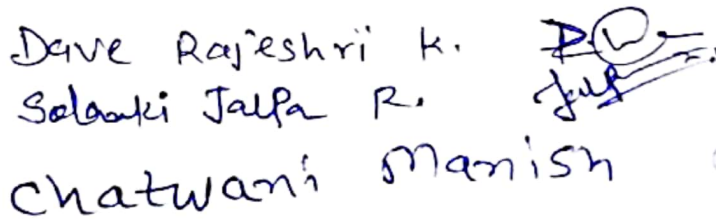 Dave Rajeshri K.
Solanki Jalpa R.
Chatwani Manish